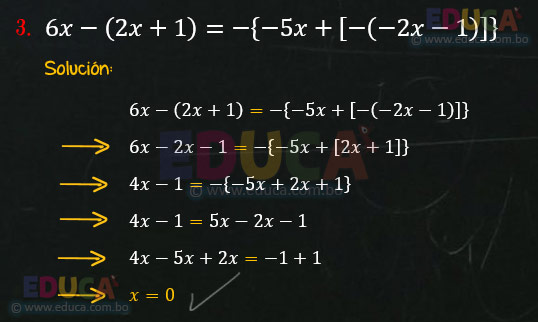 3. 6x − (2x + 1) = −{−5x + [−(−2x − 1)]}
EDUCA
© www.educa.com.bo
Solución:
6x − (2x + 1) = −{−5x + [−(−2x − 1)]}
6x − 2x − 1 = −{−5x + [2x + 1]}
EDUCA
© www.educa.com.bo
4x − 1 = −{−5x + 2x + 1}
4x − 1 = 5x − 2x − 1
4x − 5x + 2x = −1 + 1
EDUCA
x = 0
© www.educa.com.bo